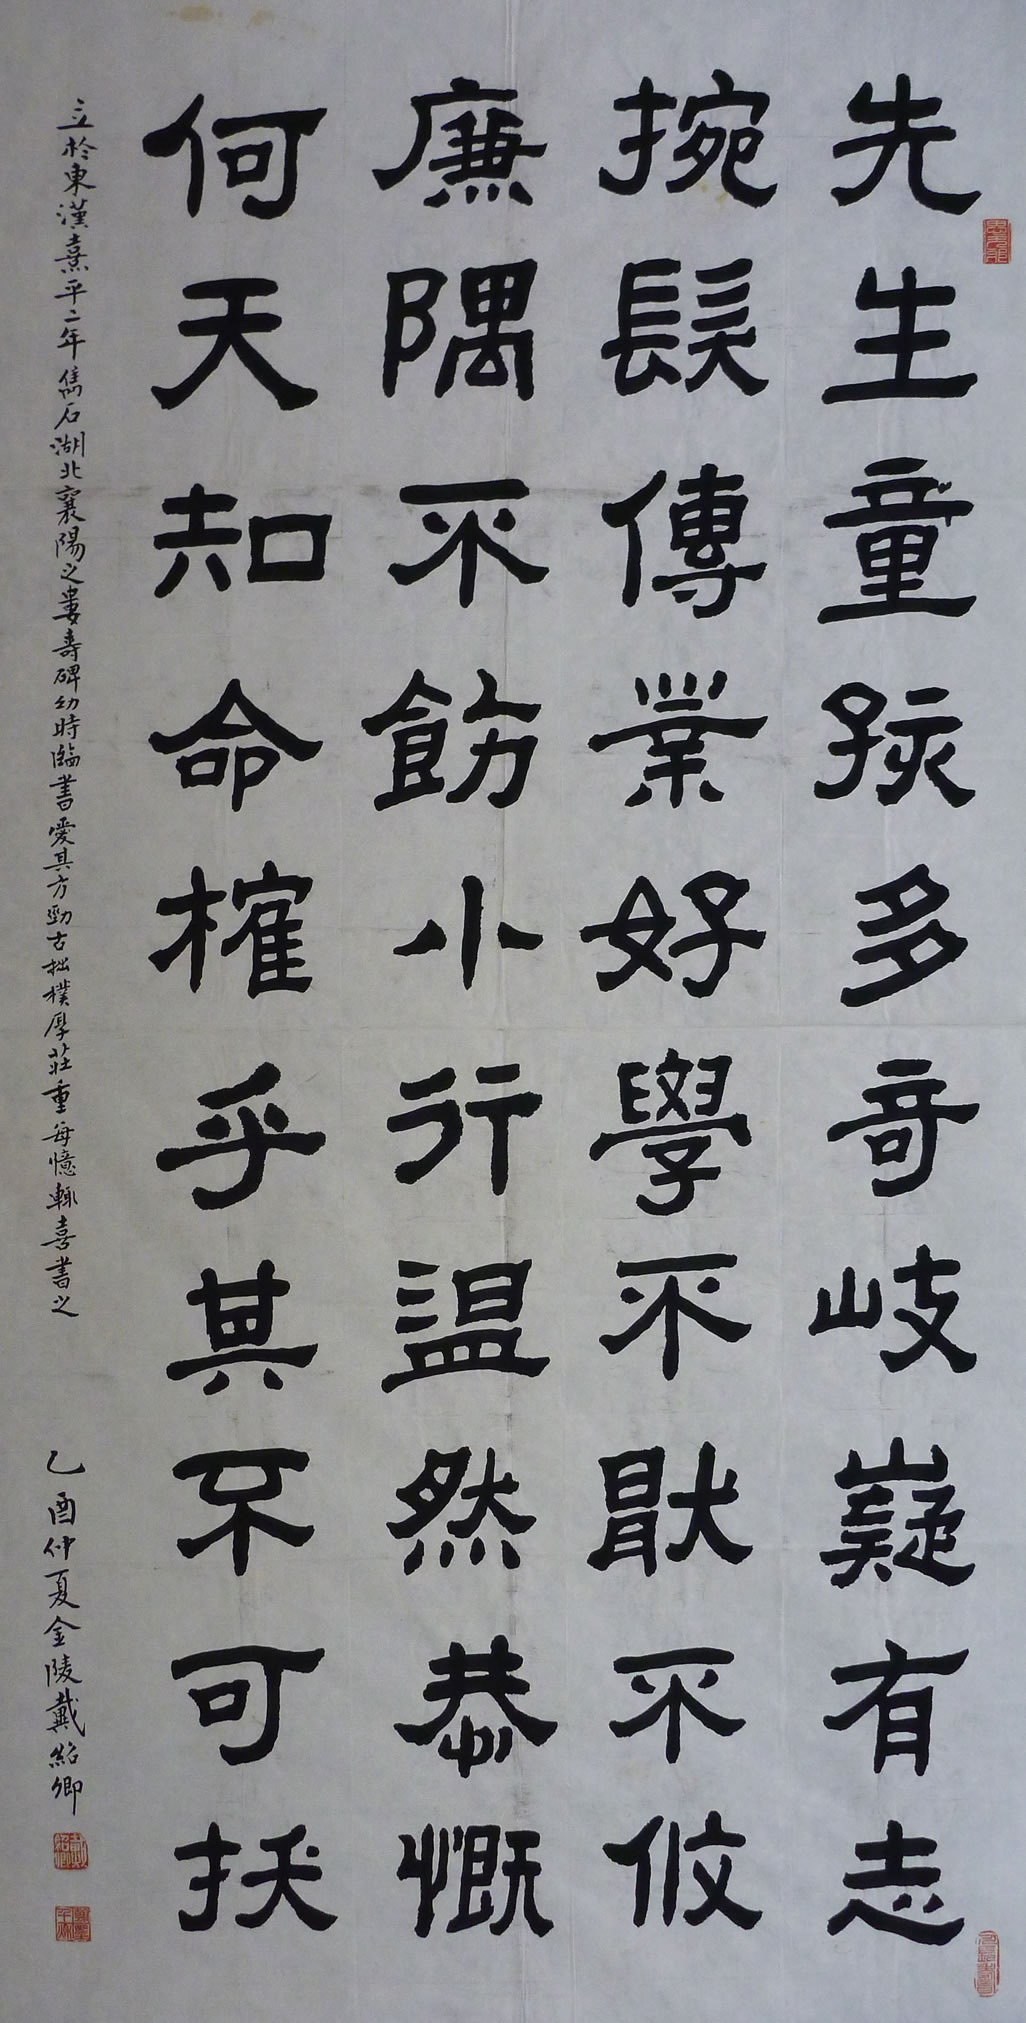 先生童孩多奇岐嶷有志
捥髮傳業好學不猒不攸
廉隅不飭小行温然恭慨
何天知命榷乎其不可扶
立於東漢熹平二年雋石湖北襄陽之婁壽碑幼時臨書愛其方勁古拙樸厚莊重每憶輒喜書之
乙酉仲夏金陵戴紹卿